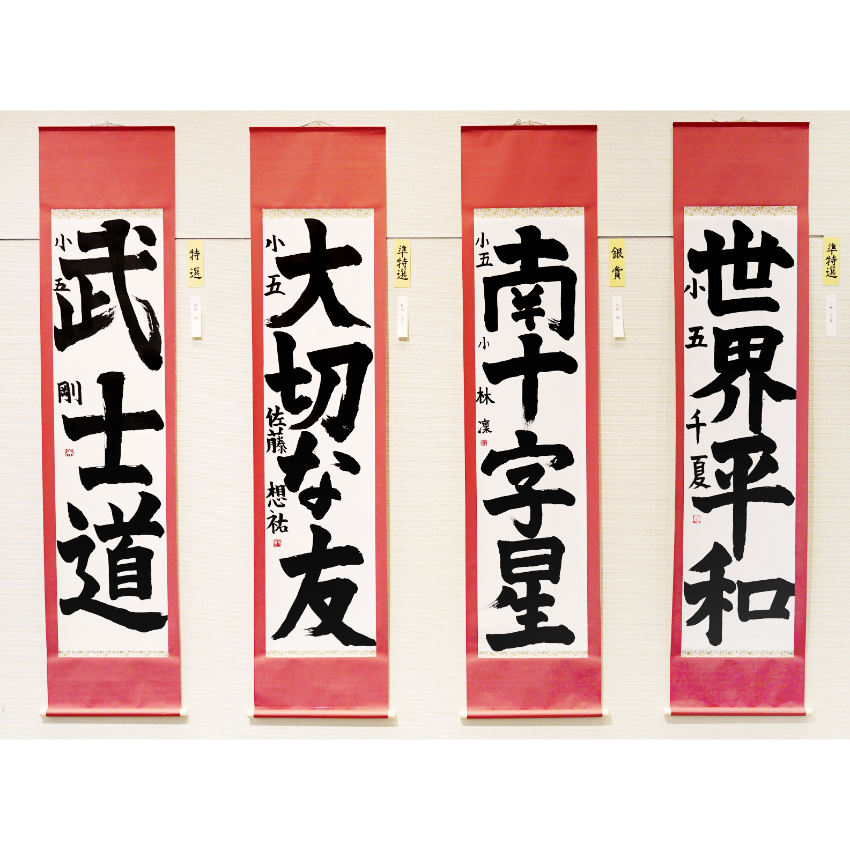 武士道
小五 剛
特選
大切な友
小五 佐藤 想祐
準特選
南十字星
小五 小林 凜
銀賞
世界平和
小五 千夏
準特選